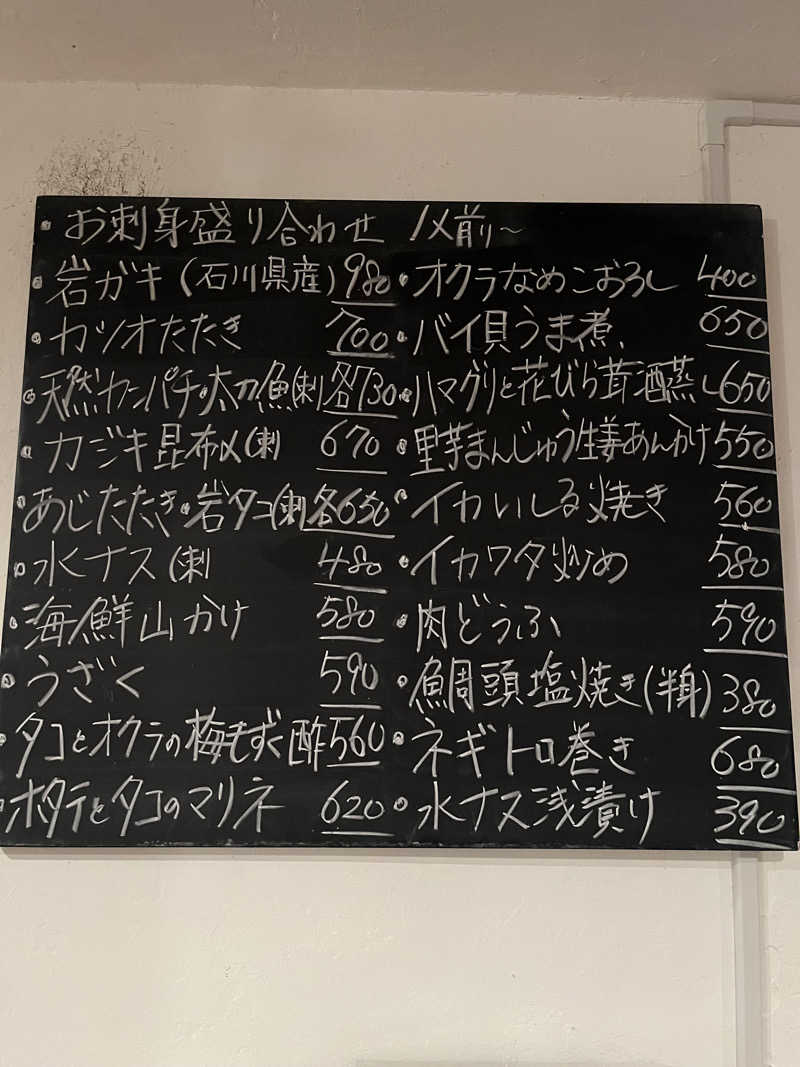 お刺身盛り合わせ 1人前〜
岩ガキ(石川県産) 980
カツオたたき 700
天然カンパチ・太刀魚(刺) 各730
カジキ昆布〆(刺) 670
あじたたき・岩タコ(刺) 各650
水ナス(刺) 480
海鮮山かけ 580
うざく 590
タコとオクラの梅もずく酢 560
ホタテとタコのマリネ 620
オクラなめこおろし 400
バイ貝うま煮 650
ハマグリと花びら茸酒蒸し 650
里芋まんじゅう生姜あんかけ 550
イカいしる焼き 560
イカワタ炒め 580
肉どうふ 590
鯛頭塩焼き(半身) 380
ネギトロ巻き 680
水ナス浅漬け 390